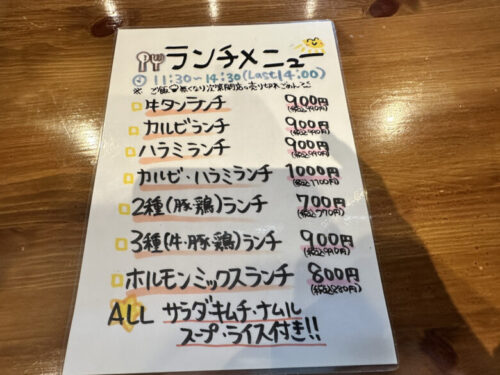 ランチメニュー
11:30~14:30(Last14:00)
※ご飯無くなり次第閉店。売り切れごめん。
牛タンランチ 900円
(税込990円)
カルビランチ 900円
(税込990円)
ハラミランチ 900円
(税込990円)
カルビ・ハラミランチ 1000円
(税込1100円)
2種(豚・鶏)ランチ 700円
(税込770円)
3種(牛・豚・鶏)ランチ 900円
(税込990円)
ホルモンミックスランチ 800円
(税込880円)
ALL サラダ・キムチ・ナムル
スープ・ライス付き!!